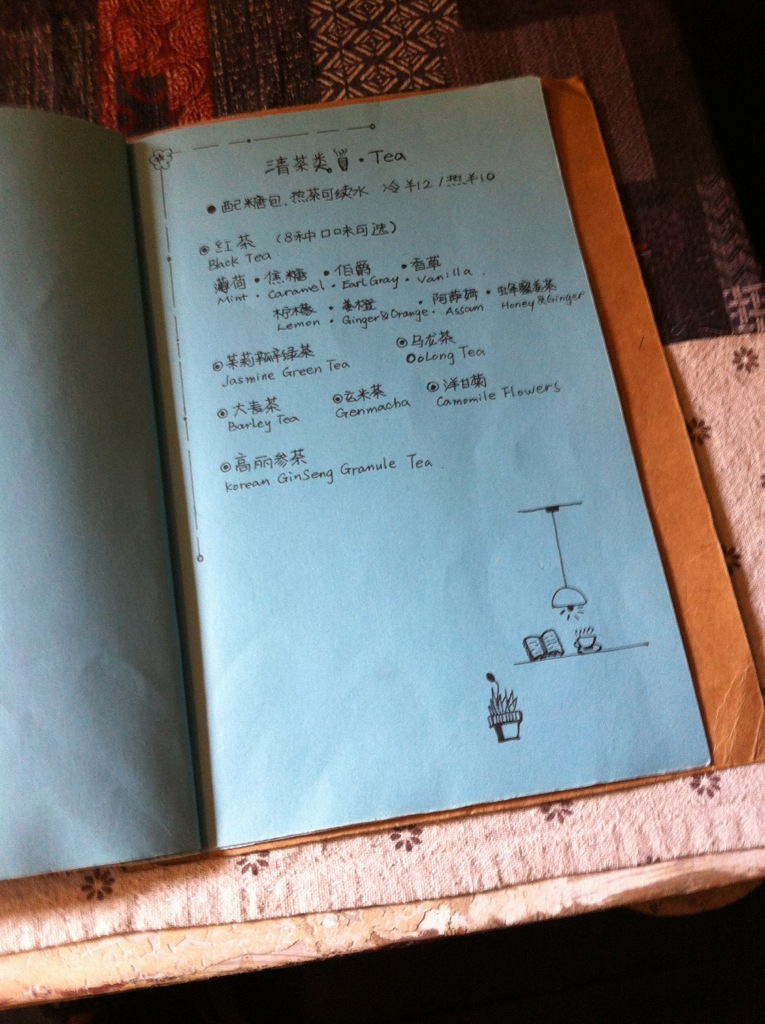 清茶类 · Tea
• 配糖包,热茶可续水 冷¥12 / 热¥10
◉ 红茶 (8种口味可选)
Black Tea
薄荷 · 焦糖 · 伯爵 · 香草
Mint · Caramel · Earl Gray · Vanilla
柠檬 · 姜橙 · 阿萨姆 · 蜂蜜姜茶
Lemon · Ginger&Orange · Assam · Honey&Ginger
◉ 茉莉 绿茶 ◉ 乌龙茶
Jasmine Green Tea OoLong Tea
◉ 大麦茶 ◉ 玄米茶 ◉ 洋甘菊
Barley Tea Genmacha Camomile Flowers
◉ 高丽参茶
Korean GinSeng Granule Tea